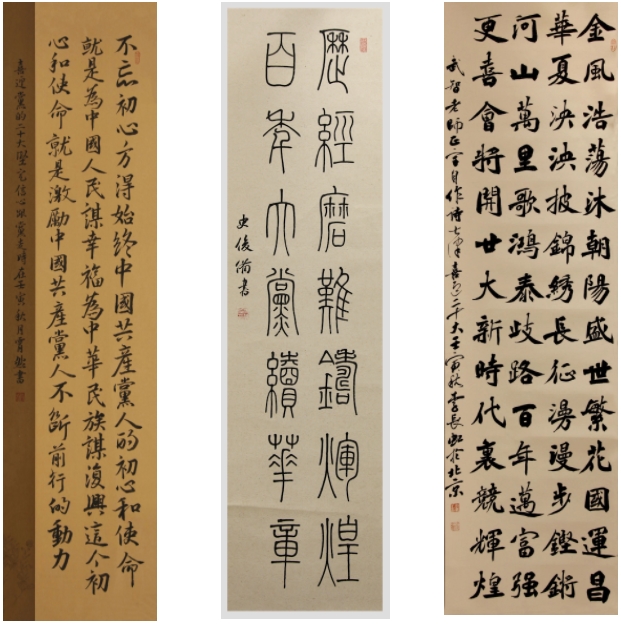 不忘初心方得始终中國共產黨人的初心和使命
就是為中國人民謀幸福為中華民族謀復興這个初
心和使命就是激勵中國共產黨人不斷前行的動力
喜迎黨的二十大堅定信心跟黨走時在壬寅秋月書
歷經磨難鑄輝煌
百年大黨續華章
史書
金風浩蕩沐朝陽盛世繁花國運昌
華夏泱泱披錦綉長征漫漫步鏗鏘
河山萬里歌鴻泰歧路百年邁富强
更喜會將開廿大新時代裏競輝煌
武智老師正字自作詩七律喜迎二十大壬寅秋李長虹於北京